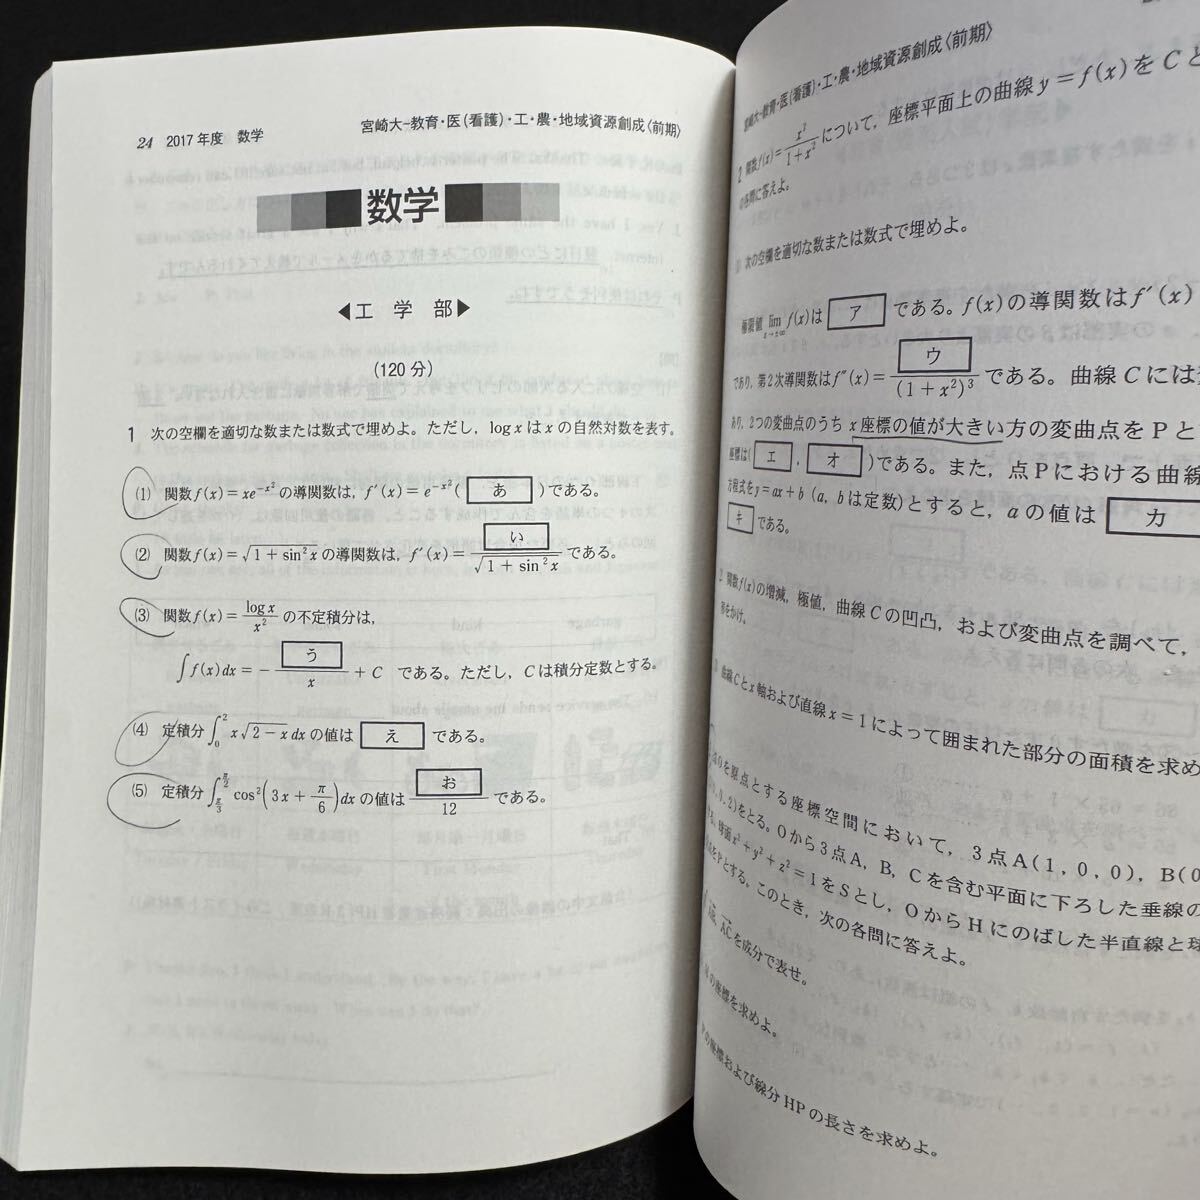 24　2017年度　数学
宮崎大−教育・医(看護)・工・農・地域資源創成〈前期〉
数学
◀工　学　部▶
(120分)
1　次の空欄を適切な数または数式で埋めよ。ただし，log x は x の自然対数を表す。
(1)　関数 f(x) = xe^{-x^2} の導関数は，f′(x) = e^{-x^2}( あ ) である。
(2)　関数 f(x) = √(1 + sin²x) の導関数は，f′(x) = い / √(1 + sin²x) である。
(3)　関数 f(x) = log x / x² の不定積分は，
∫f(x)dx = − う / x + C　である。ただし，C は積分定数とする。
(4)　定積分 ∫_0^2 x√(2 − x) dx の値は え である。
(5)　定積分 ∫_{π/3}^{π/2} cos²(3x + π/6)dx の値は お / 12 である。
宮崎大−教育・医(看護)・工・農・地域資源創成〈前期〉
2　関数 f(x) = x² / (1 + x²) について，座標平面上の曲線 y = f(x) を C と
の各問に答えよ。
次の空欄を適切な数または数式で埋めよ。
極限値 lim_{x→±∞} f(x) は ア である。f(x) の導関数は f′(x)
であり，第2次導関数は f″(x) = ウ / (1 + x²)³ である。曲線 C には
あり，2つの変曲点のうち x 座標の値が大きい方の変曲点を P と
座標は( エ ， オ )である。また，点 P における曲線
方程式を y = ax + b (a，b は定数)とすると，a の値は カ
キ である。
関数 f(x) の増減，極値，曲線 C の凹凸，および変曲点を調べて，
をかけ。
曲線 C と x 軸および直線 x = 1 によって囲まれた部分の面積を求め
を原点とする座標空間において，3点 A(1，0，0)，B(0
0，2)をとる。O から3点 A，B，C を含む平面に下ろした垂線の
球面 x² + y² + z² = 1 を S とし，O から H にのばした半直線と球
を P とする。このとき，次の各問に答えよ。
AC を成分で表せ。
の座標を求めよ。
P の座標および線分 HP の長さを求めよ。